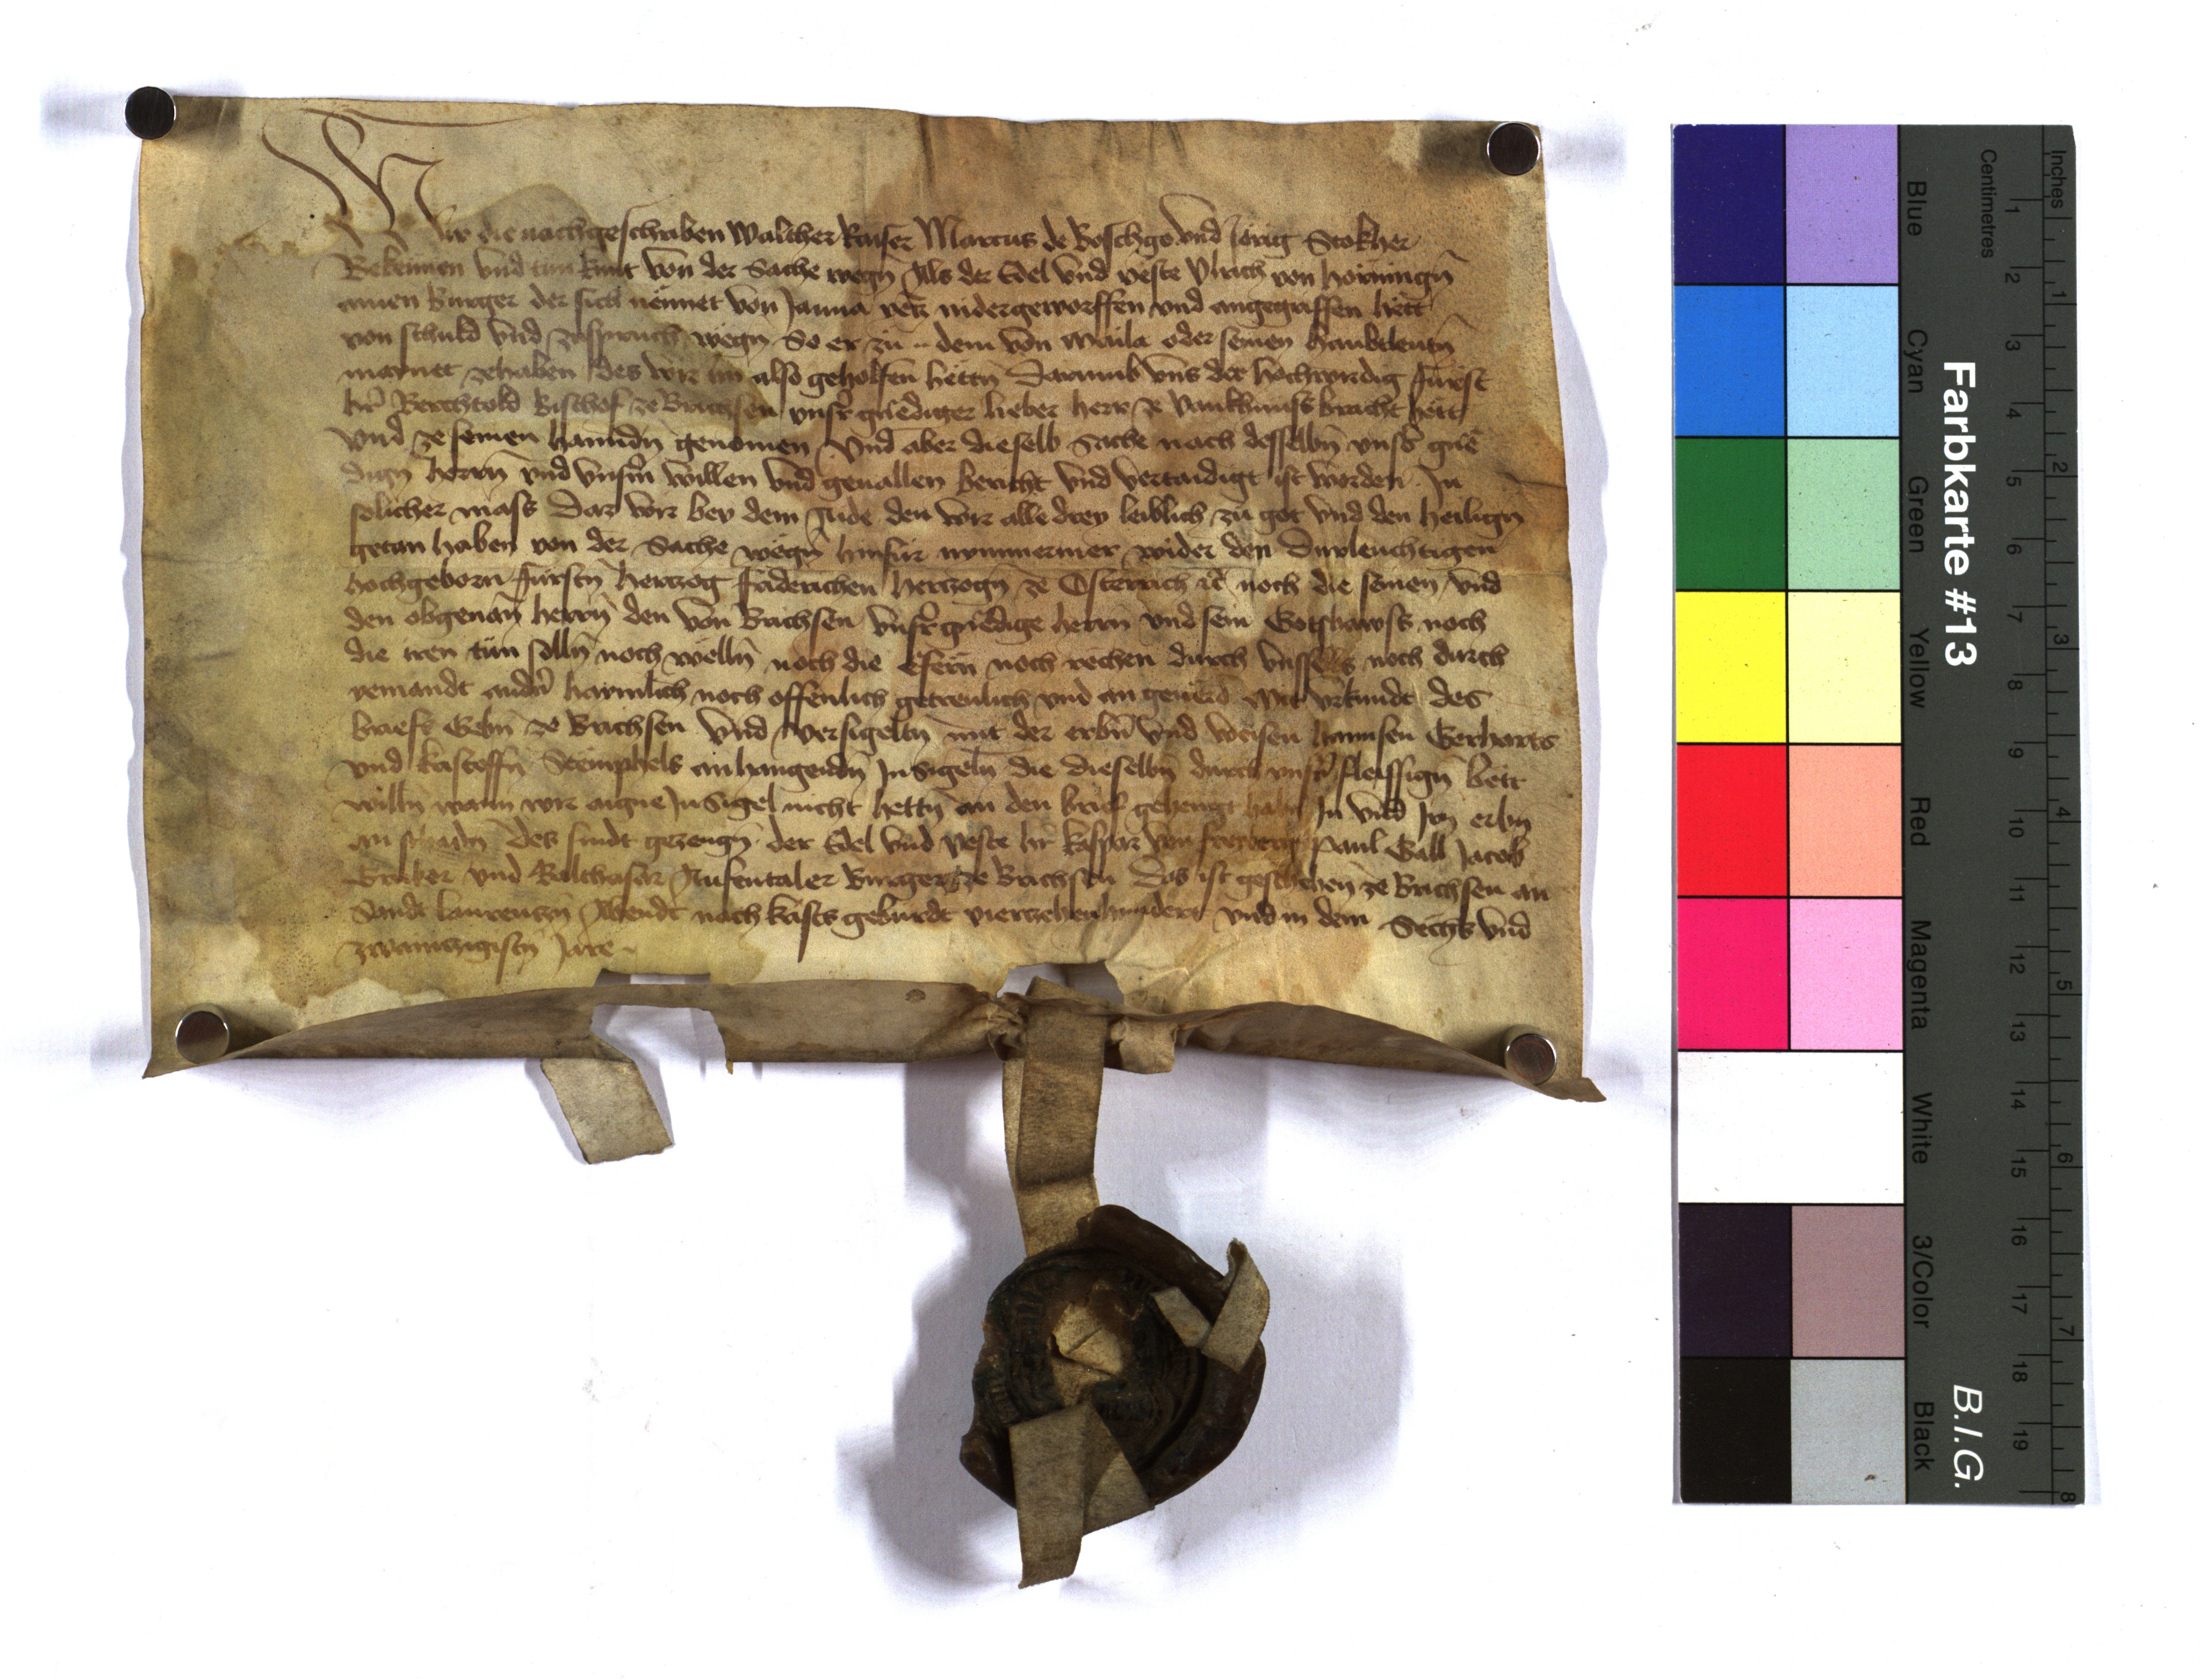 Wir die nachgeschriben Walther kaiser Marcus de Boschgo vnd Jorig Stokher
Bekennen vnd tun kunt von der Sache wegn Als der Edel vnd veste Vlrich von horningn
ainen burger der sich nennet von Janna vetz nidergeworffen vnd angegriffen hett
von schuld vnd zuspruch wegn So er zu .. dem von Maila oder seinen haubtleutn
maynet zehaben des wir im also geholfen hettn Darumb vns der hochwirdig fürst
her Berchtold Bischof ze Brichsen vnser gnediger lieber herr ze vankhnuss bracht hett
vnd ze seinen hanndn genomen Vnd aber dieselb Sache nach desselbn vnsers gne
dign herrn vnd vnserm willen vnd geuallen bericht vnd vertaidigt ist worden In
solicher mass Daz wir bey dem Aide den wir alle drey leiblich zu got vnd den heilign
getan haben von der Sache wegn hinfür nymmermer wider den Durleuchtigen
hochgeborn fürstn hertzog fridrichen hertzogn ze Osterrich etc noch die seinen vnd
den obgenan herrn den von Brichsen vnser gnedige herrn vnd sein Gotshawss noch
die iren tun solln noch welln noch die efern noch rechen durch vnsselbs noch durch
yemandt andern haymlich noch offenlich getreulich vnd an geuerd Mit vrkundt des
briefs Gebn ze Brichsen Vnd versigeltn mit der erbern vnd weisen hannsen Gerharts
vnd kristoffn Stemphels anhangendn Insigeln die dieselbn durch vnser fleissign bett
willn wann wir aigne Insigel nicht hettn an den brief gehengt habn In vnd Irn erbn
an schadn Des sindt gezeugn der Edel vnd veste her kaspar von freyberg Paul Gall Jacob
Gruber vnd Balthasar Rusentaler Burger ze Brichsen Das ist geschehen ze Brichsen an
Sandt laurentzn Abendt nach krists geburdt vierzehenhundert vnd in dem Sechs vnd
zwaintzigistn Jare
Farbkarte #13
B.I.G.
Blue Cyan Green Yellow Red Magenta White 3/Color Black
Centimetres 1 2 3 4 5 6 7 8 9 10 11 12 13 14 15 16 17 18 19
Inches 1 2 3 4 5 6 7 8